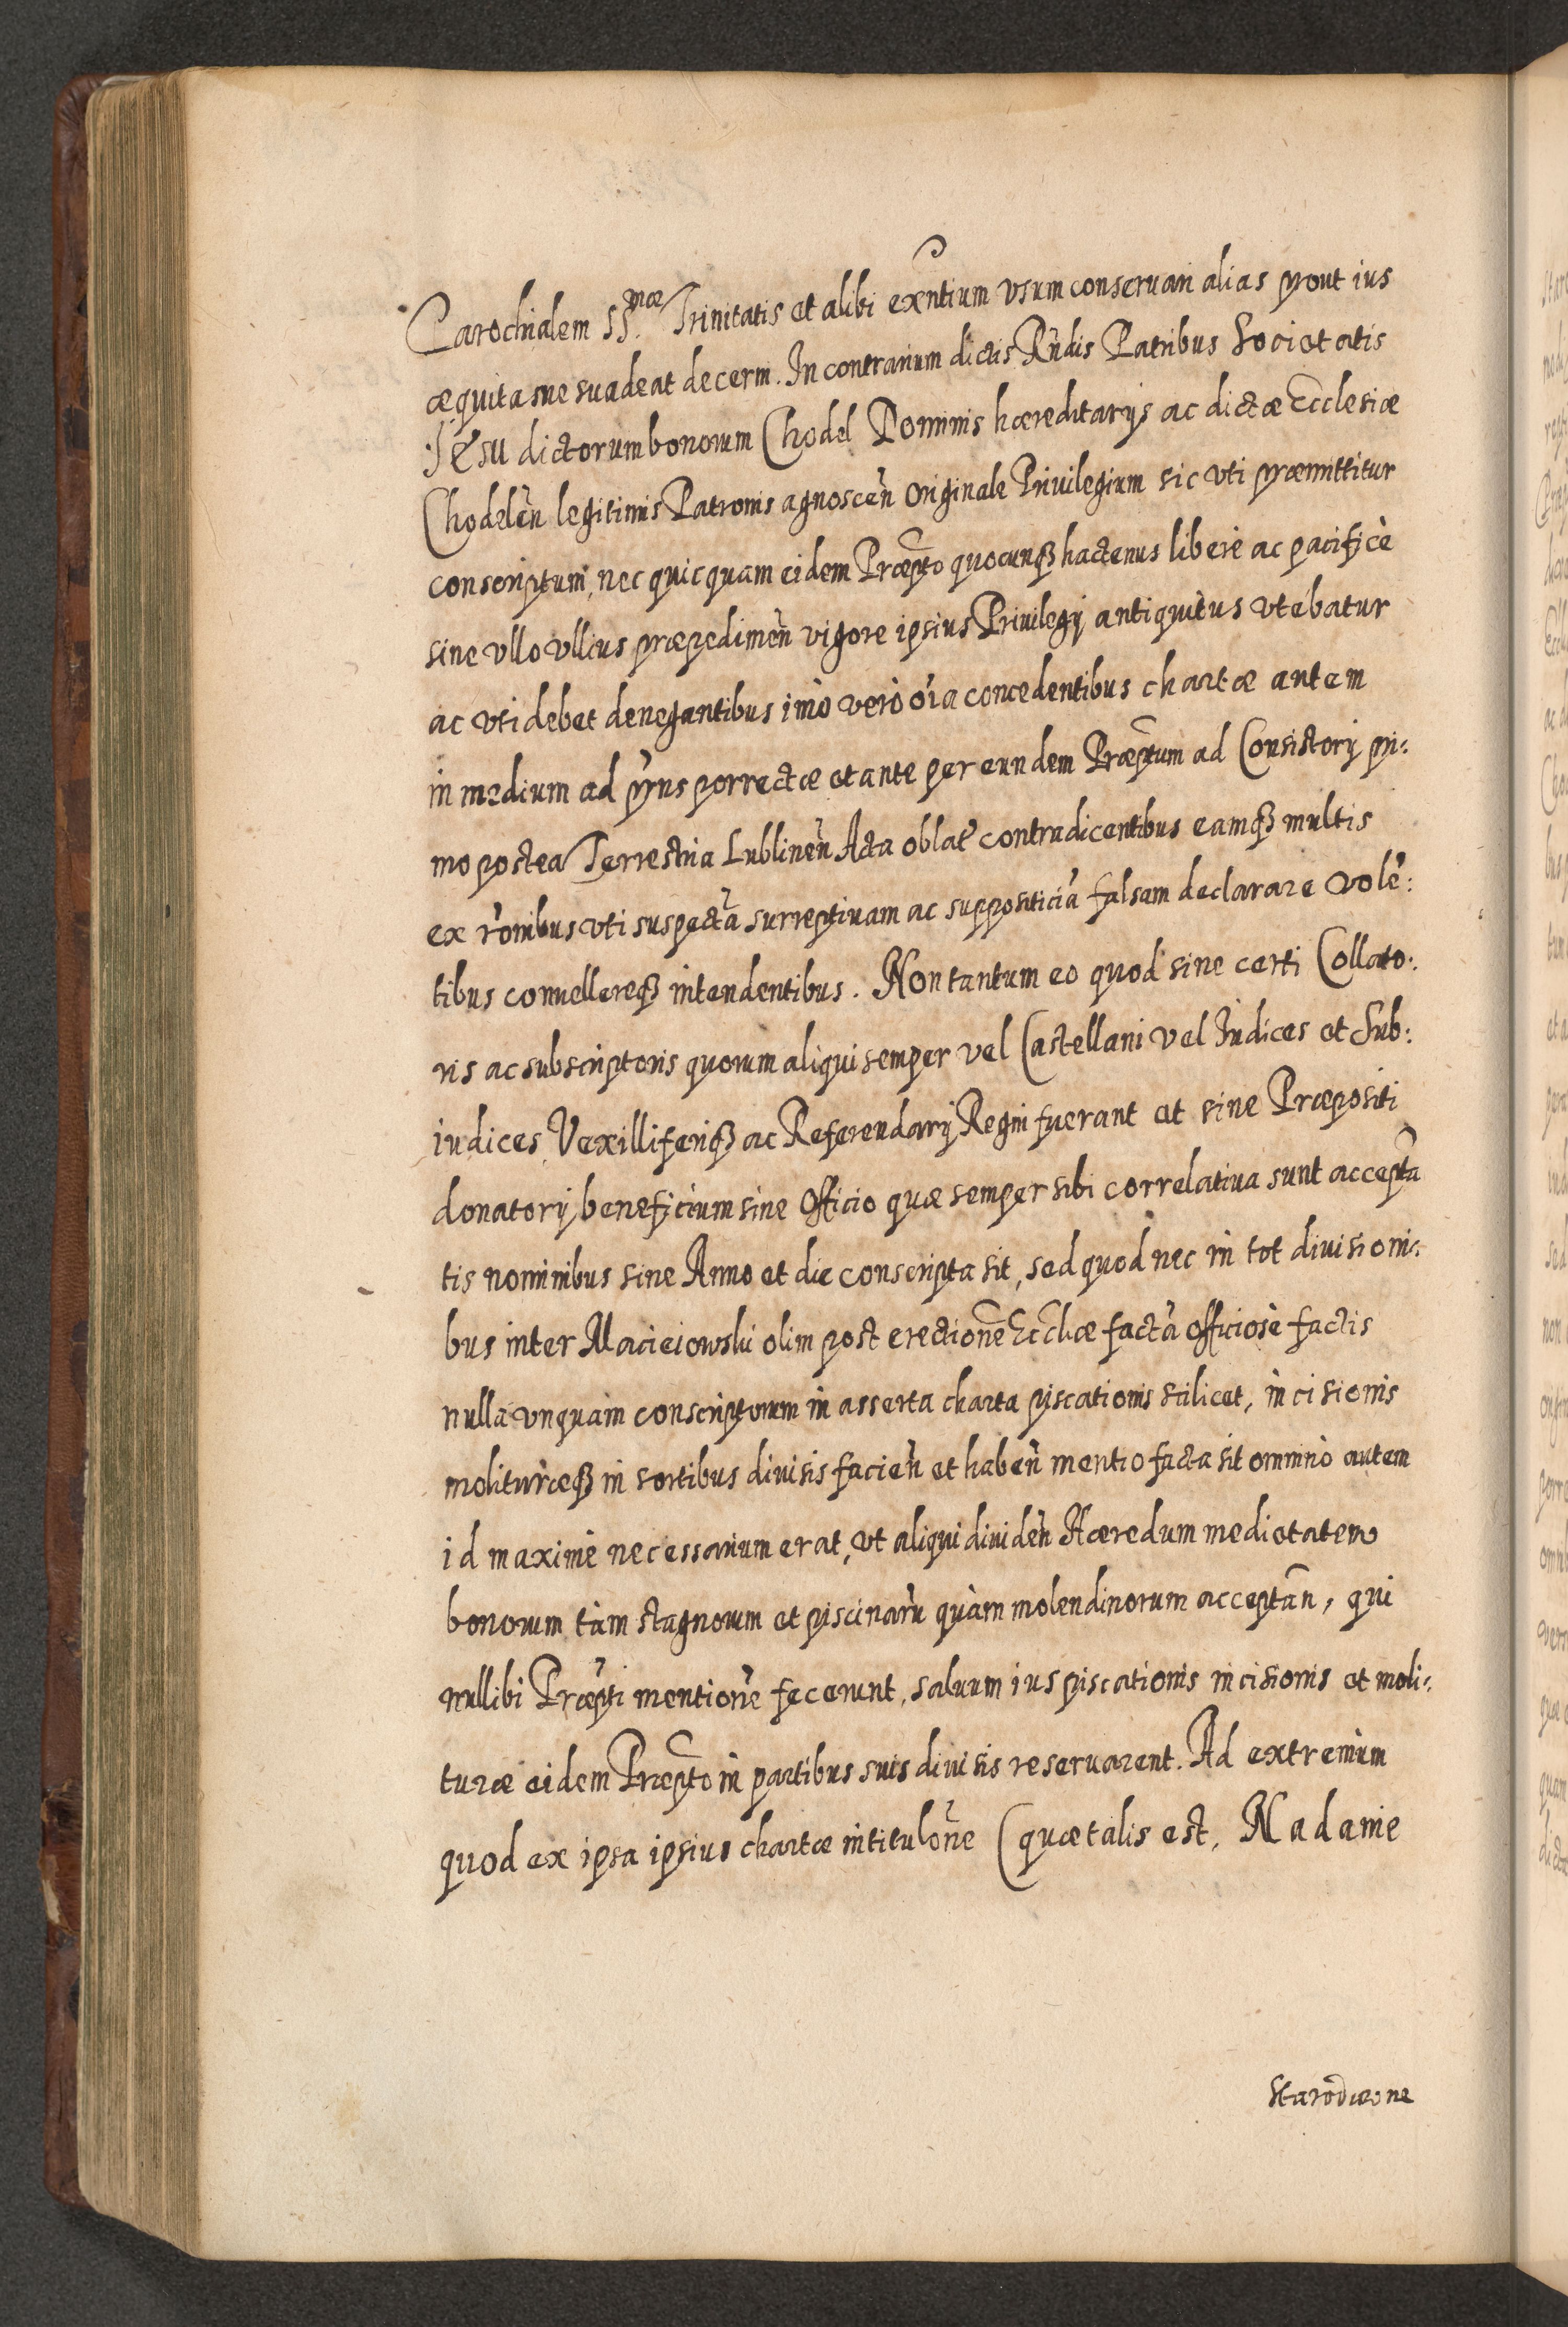 Parochialem SS.mæ Trinitatis et alibi exñtium vsum conseruari alias prout ius
æquitasue suadeat decerni. In contrarium dictis Rñdis Patribus Societatis
Jesu dictorum bonorum Chodel Dominis hæreditarijs ac dictæ Ecclesiæ
Chodelen̄ legitimis Patronis agnoscen̄ Originale Priuilegium sic vti præmittitur
conscriptum, nec quicquam eidem Præpto quocunqȝ hactenus liberè ac pacificè
sine vllo vllius præpedimen̄ vigore ipsius Priuilegij antiquitus vtebatur
ac vti debet denegantibus imò verò oîa concedentibus chartæ autem
in medium ad p̃ns porrectæ et ante per eundem Præptum ad Consistorij pri:
mo postea Terrestria Lublinen̄ Acta oblatę contradicentibus eamqȝ multis
ex rōnibus vti suspectā surreptiuam ac suppositiciā falsam declarare volē:
tibus conuellereqȝ intendentibus. Non tantum eo quod sine certi Collato:
ris ac subscriptoris quorum aliqui semper vel Castellani vel Iudices et Sub:
iudices, Vexilliferiqȝ ac Referendarij Regni fuerant et sine Præpositi
donatorij beneficium sine Officio quæ semper sibi correlatiua sunt acceptā
tis nominibus sine Anno et die conscripta sit, sed quod nec in tot diuisioni:
bus inter Macieiowski olim post erectionē Eccliæ factā officiosè factis
nulla vnquam conscriptorum in asserta charta piscationis scilicet, incisionis
molituræqȝ in sortibus diuisis facien̄ et haben̄ mentio facta sit omninò autem
id maximè necessarium erat, vt aliqui diuiden̄ Hæredum medietatem
bonorum tàm stagnorum et piscinarū quàm molendinorum acceptan̄, qui
nullibi Præpti mentionē fecerunt, saluum ius piscationis incisionis et moli:
turæ eidem Præpto in partibus suis diuisis reseruarent. Ad extremum
quod ex ipsa ipsius chartæ intitulōne (quæ talis est, Nadanie
Starodawne